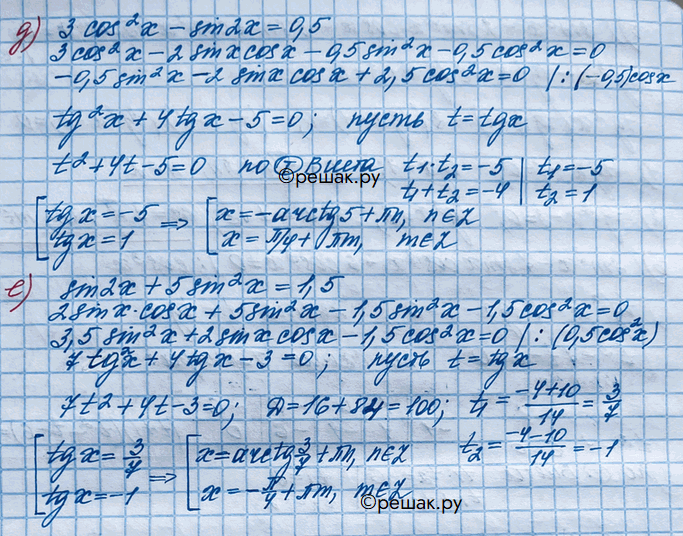 д) 3 cos²x − sin2x = 0,5
3cos²x − 2 sinx cosx − 0,5 sin²x − 0,5 cos²x = 0
−0,5 sin²x − 2 sinx cosx + 2,5 cos²x = 0 | : (−0,5)cosx
tg²x + 4tgx − 5 = 0; пусть t = tgx
t² + 4t − 5 = 0 по Т Виета t₁·t₂ = −5 | t₁ = −5
©решак.ру t₁ + t₂ = −4 | t₂ = 1
[ tgx = −5 ⇒ [ x = −arctg5 + πn, n∈Z
tgx = 1 x = π/4 + πm, m∈Z
е) sin2x + 5sin²x = 1,5
2sinx·cosx + 5sin²x − 1,5sin²x − 1,5cos²x = 0
3,5 sin²x + 2sinx cosx − 1,5cos²x = 0 | : (0,5cos²x)
7tg²x + 4tgx − 3 = 0; пусть t = tgx
7t² + 4t − 3 = 0; Д = 16 + 84 = 100; t₁ = (−4+10)/14 = 3/7
[ tgx = 3/7 ⇒ [ x = arctg 3/7 + πn, n∈Z t₂ = (−4−10)/14 = −1
tgx = −1 x = −π/4 + πm, m∈Z
©решак.ру